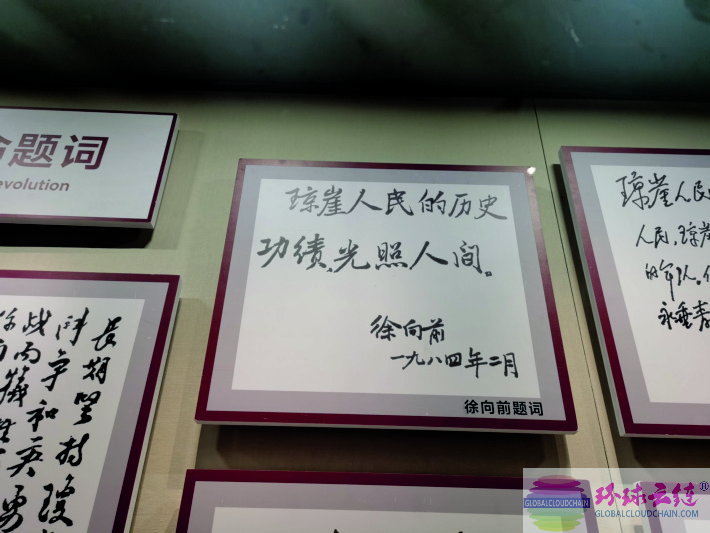 命题词
evolution
琼崖人民的历史
功绩,光照人间。
徐向前
一九八四年二月
徐向前题词
琼崖人民
人民,琼崖
的军队。
永垂青
长期坚持琼
斗争和英勇
战而牺牲
GLOBALCLOUDCHAIN
环球云链®
GLOBALCLOUDCHAIN.COM